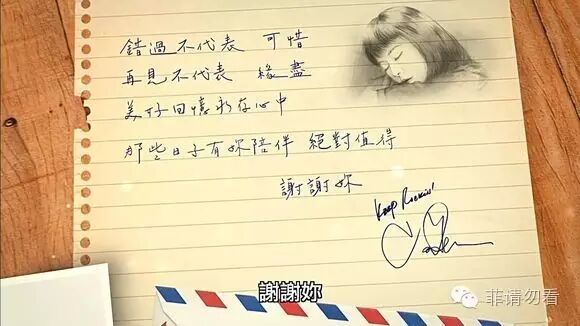 錯過不代表 可惜
再見不代表 緣盡
美好回憶永存心中
那些日子有妳陪伴 絕對值得
謝謝妳
Keep Rockin!
謝謝妳
菲请勿看